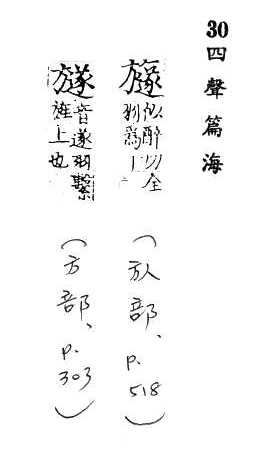 30 四聲篇海
似醉切全
羽爲
(㫃部、p.518)
音遂羽繫
旌上也
(方部、p.303)